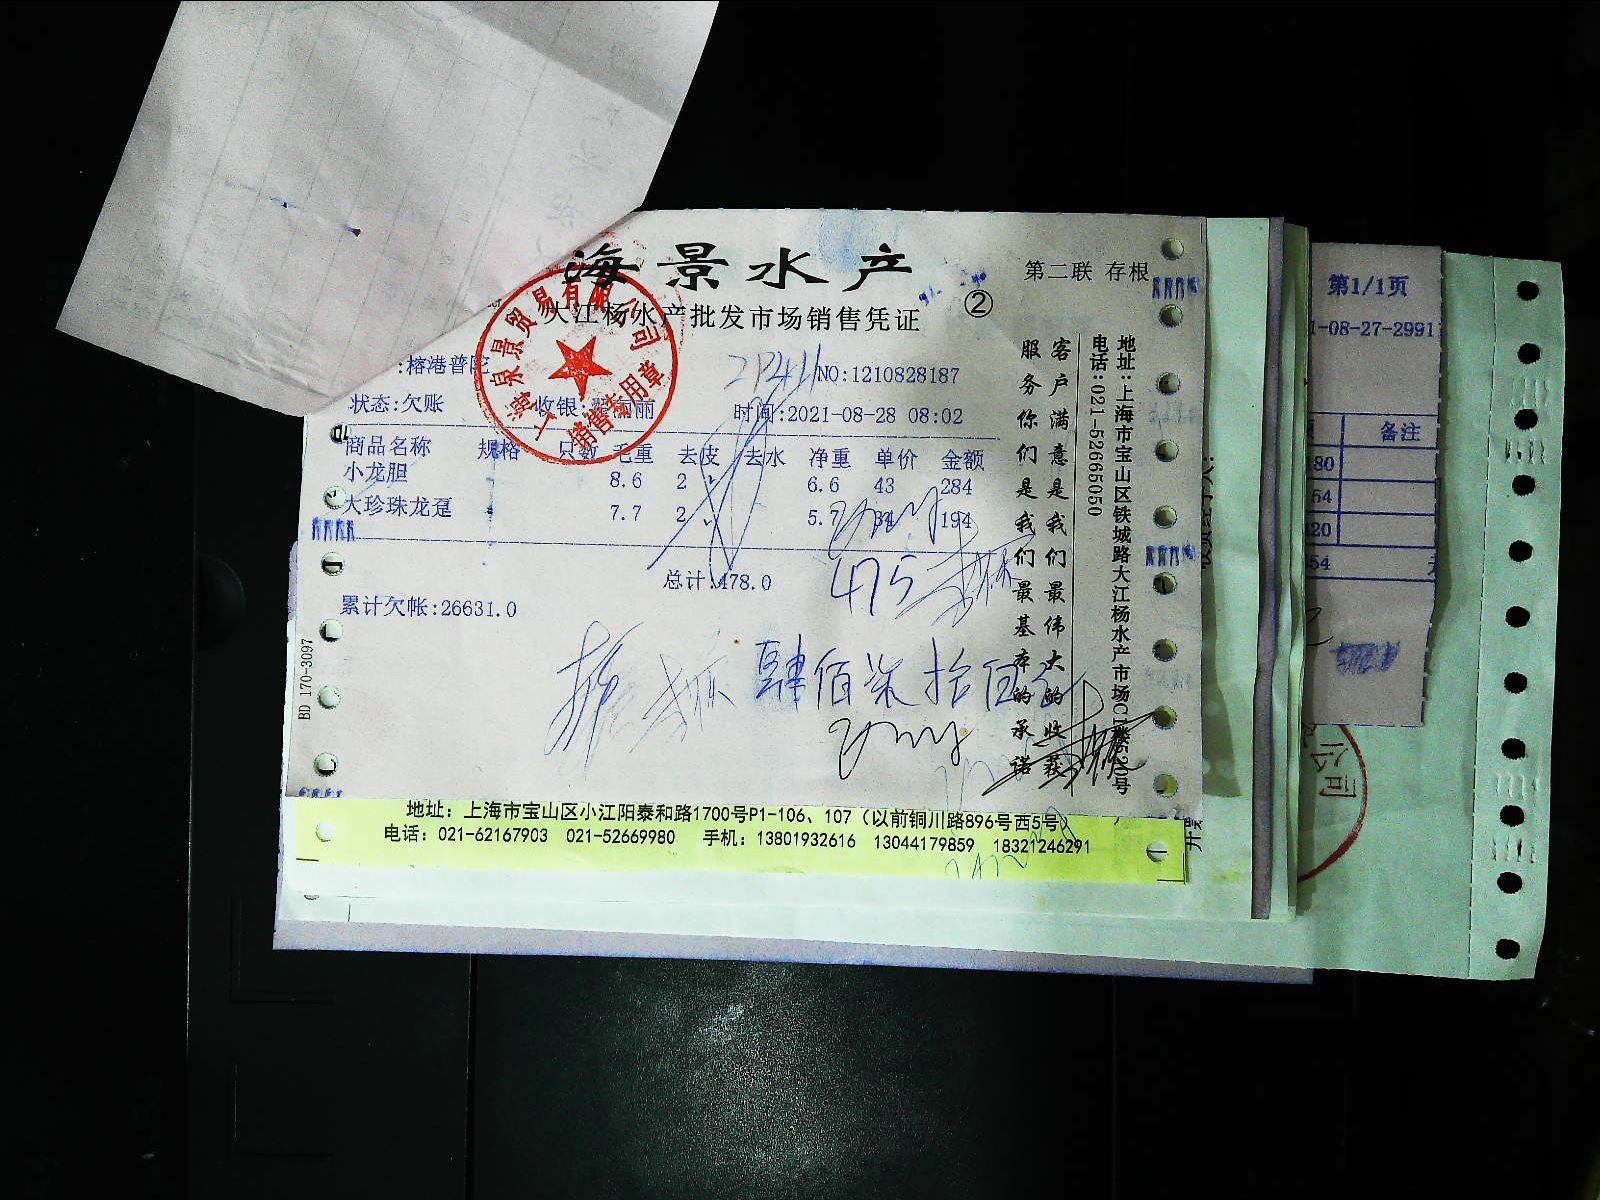 海景水产
第二联 存根
大江杨水产批发市场销售凭证
②
:榕港普陀
NO:1210828187
状态:欠账 收银: 丽 时间:2021-08-28 08:02
商品名称 规格 只数 毛重 去皮 去水 净重 单价 金额
小龙胆 8.6 2 6.6 43 284
大珍珠龙趸 7.7 2 5.7 34 194
总计:478.0
475
累计欠帐:26631.0
肆佰柒拾伍
客户满意是我们最伟大的收获
服务你们是我们最基本的承诺
地址:上海市宝山区铁城路大江杨水产市场
电话:021-52665050
BD 170-3097
销售专用章
地址：上海市宝山区小江阳泰和路1700号P1-106、107（以前铜川路896号西5号）
电话：021-62167903 021-52669980 手机：13801932616 13044179859 18321246291
第1/1页
1-08-27-2991
备注
公司